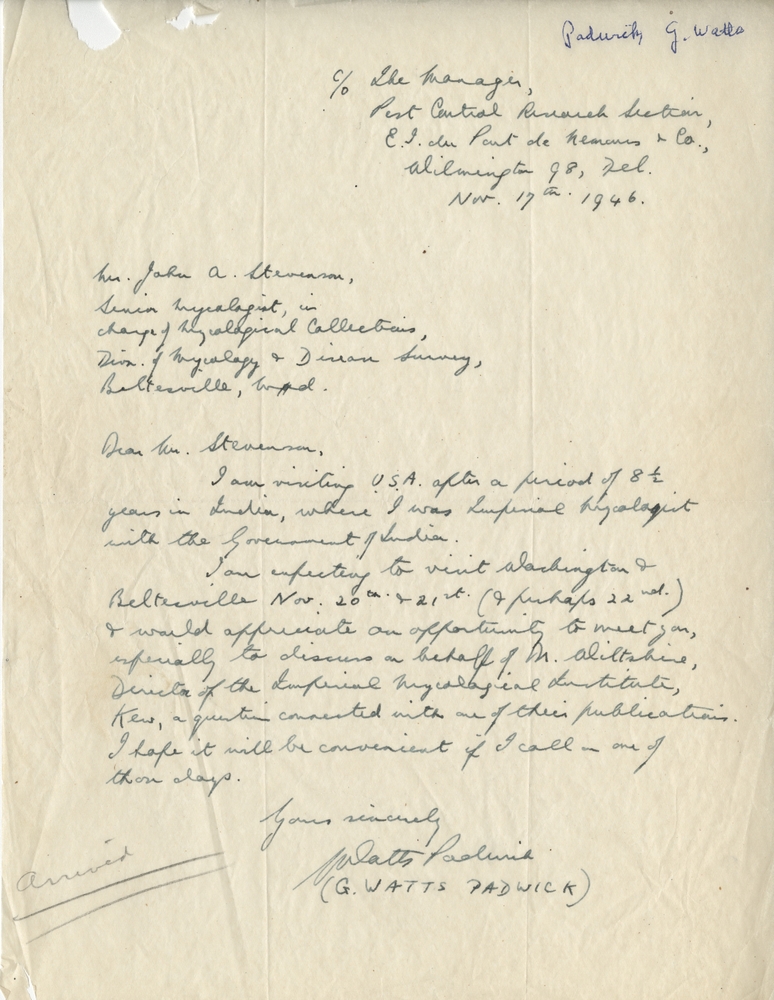 Padwick, G. Watts
c/o The Manager,
Pest Control Research Section,
E. I. du Pont de Nemours & Co.,
Wilmington 98, Del.
Nov. 17th. 1946.
Mr. John A. Stevenson,
Senior Mycologist, in
charge of Mycological Collections,
Divn. of Mycology & Disease Survey,
Beltesville, Md.
Dear Mr. Stevenson,
I am visiting U.S.A. after a period of 8½
years in India, where I was Imperial Mycologist
with the Government of India.
I am expecting to visit Washington &
Beltesville Nov. 20th. & 21st. (& perhaps 22nd.)
& would appreciate an opportunity to meet you,
especially to discuss on behalf of Mr. Wiltshire,
Director of the Imperial Mycological Institute,
Kew, a question connected with one of their publications.
I hope it will be convenient if I call on one of
those days.
Yours sincerely
G Watts Padwick
(G. WATTS PADWICK)
Arrived